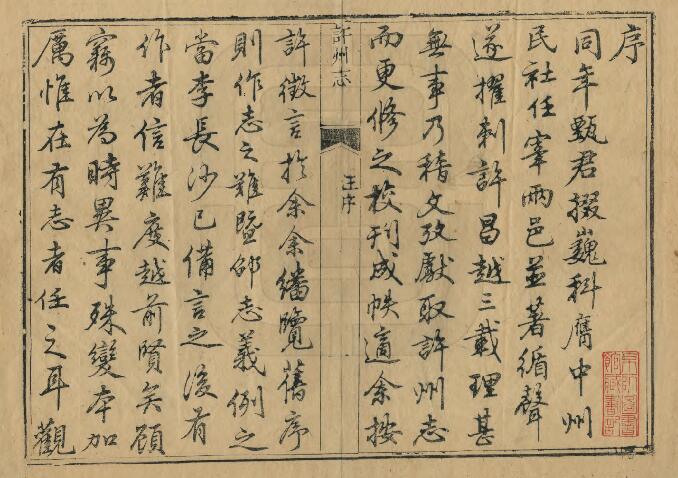 序
同年甄君掇巍科膺中州
民社任宰兩邑並著循聲
遂擢刺許昌越三載理甚
無事乃稽文攷獻取許州志
而更修之校刊成帙適余按
許州志
王序
許徵言扵余余繙覽舊序
則作志之難暨邵志義例之
當李長沙已備言之後有
作者信難度越前賢矣顧
竊以為時異事殊變本加
厲惟在有志者任之耳觀